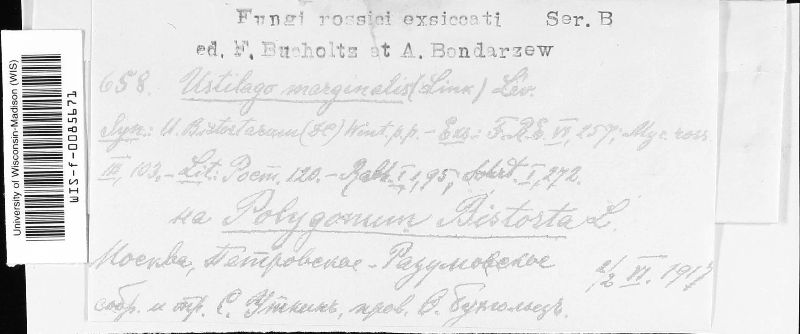 Fungi rossici exsiccati Ser. B
ed. F. Bucholtz et A. Bondarzew
658. Ustilago marginalis (Link) Lév.
Syn.: U. Bistortarum (DC) Wint. p.p. - Exs.: F.R.E. VI, 257; Myc. ross.
III, 103. - Lit.: 120. - Rabh. I, 1, 95; I, 272.
на Polygonum Bistorta L.
Москва, Петровское-Разумовское 2/2 VI. 1917
собр. и пр. С. Уткинъ, пров. Ѳ. Бухгольцъ.
University of Wisconsin-Madison (WIS)
WIS-f-0085671